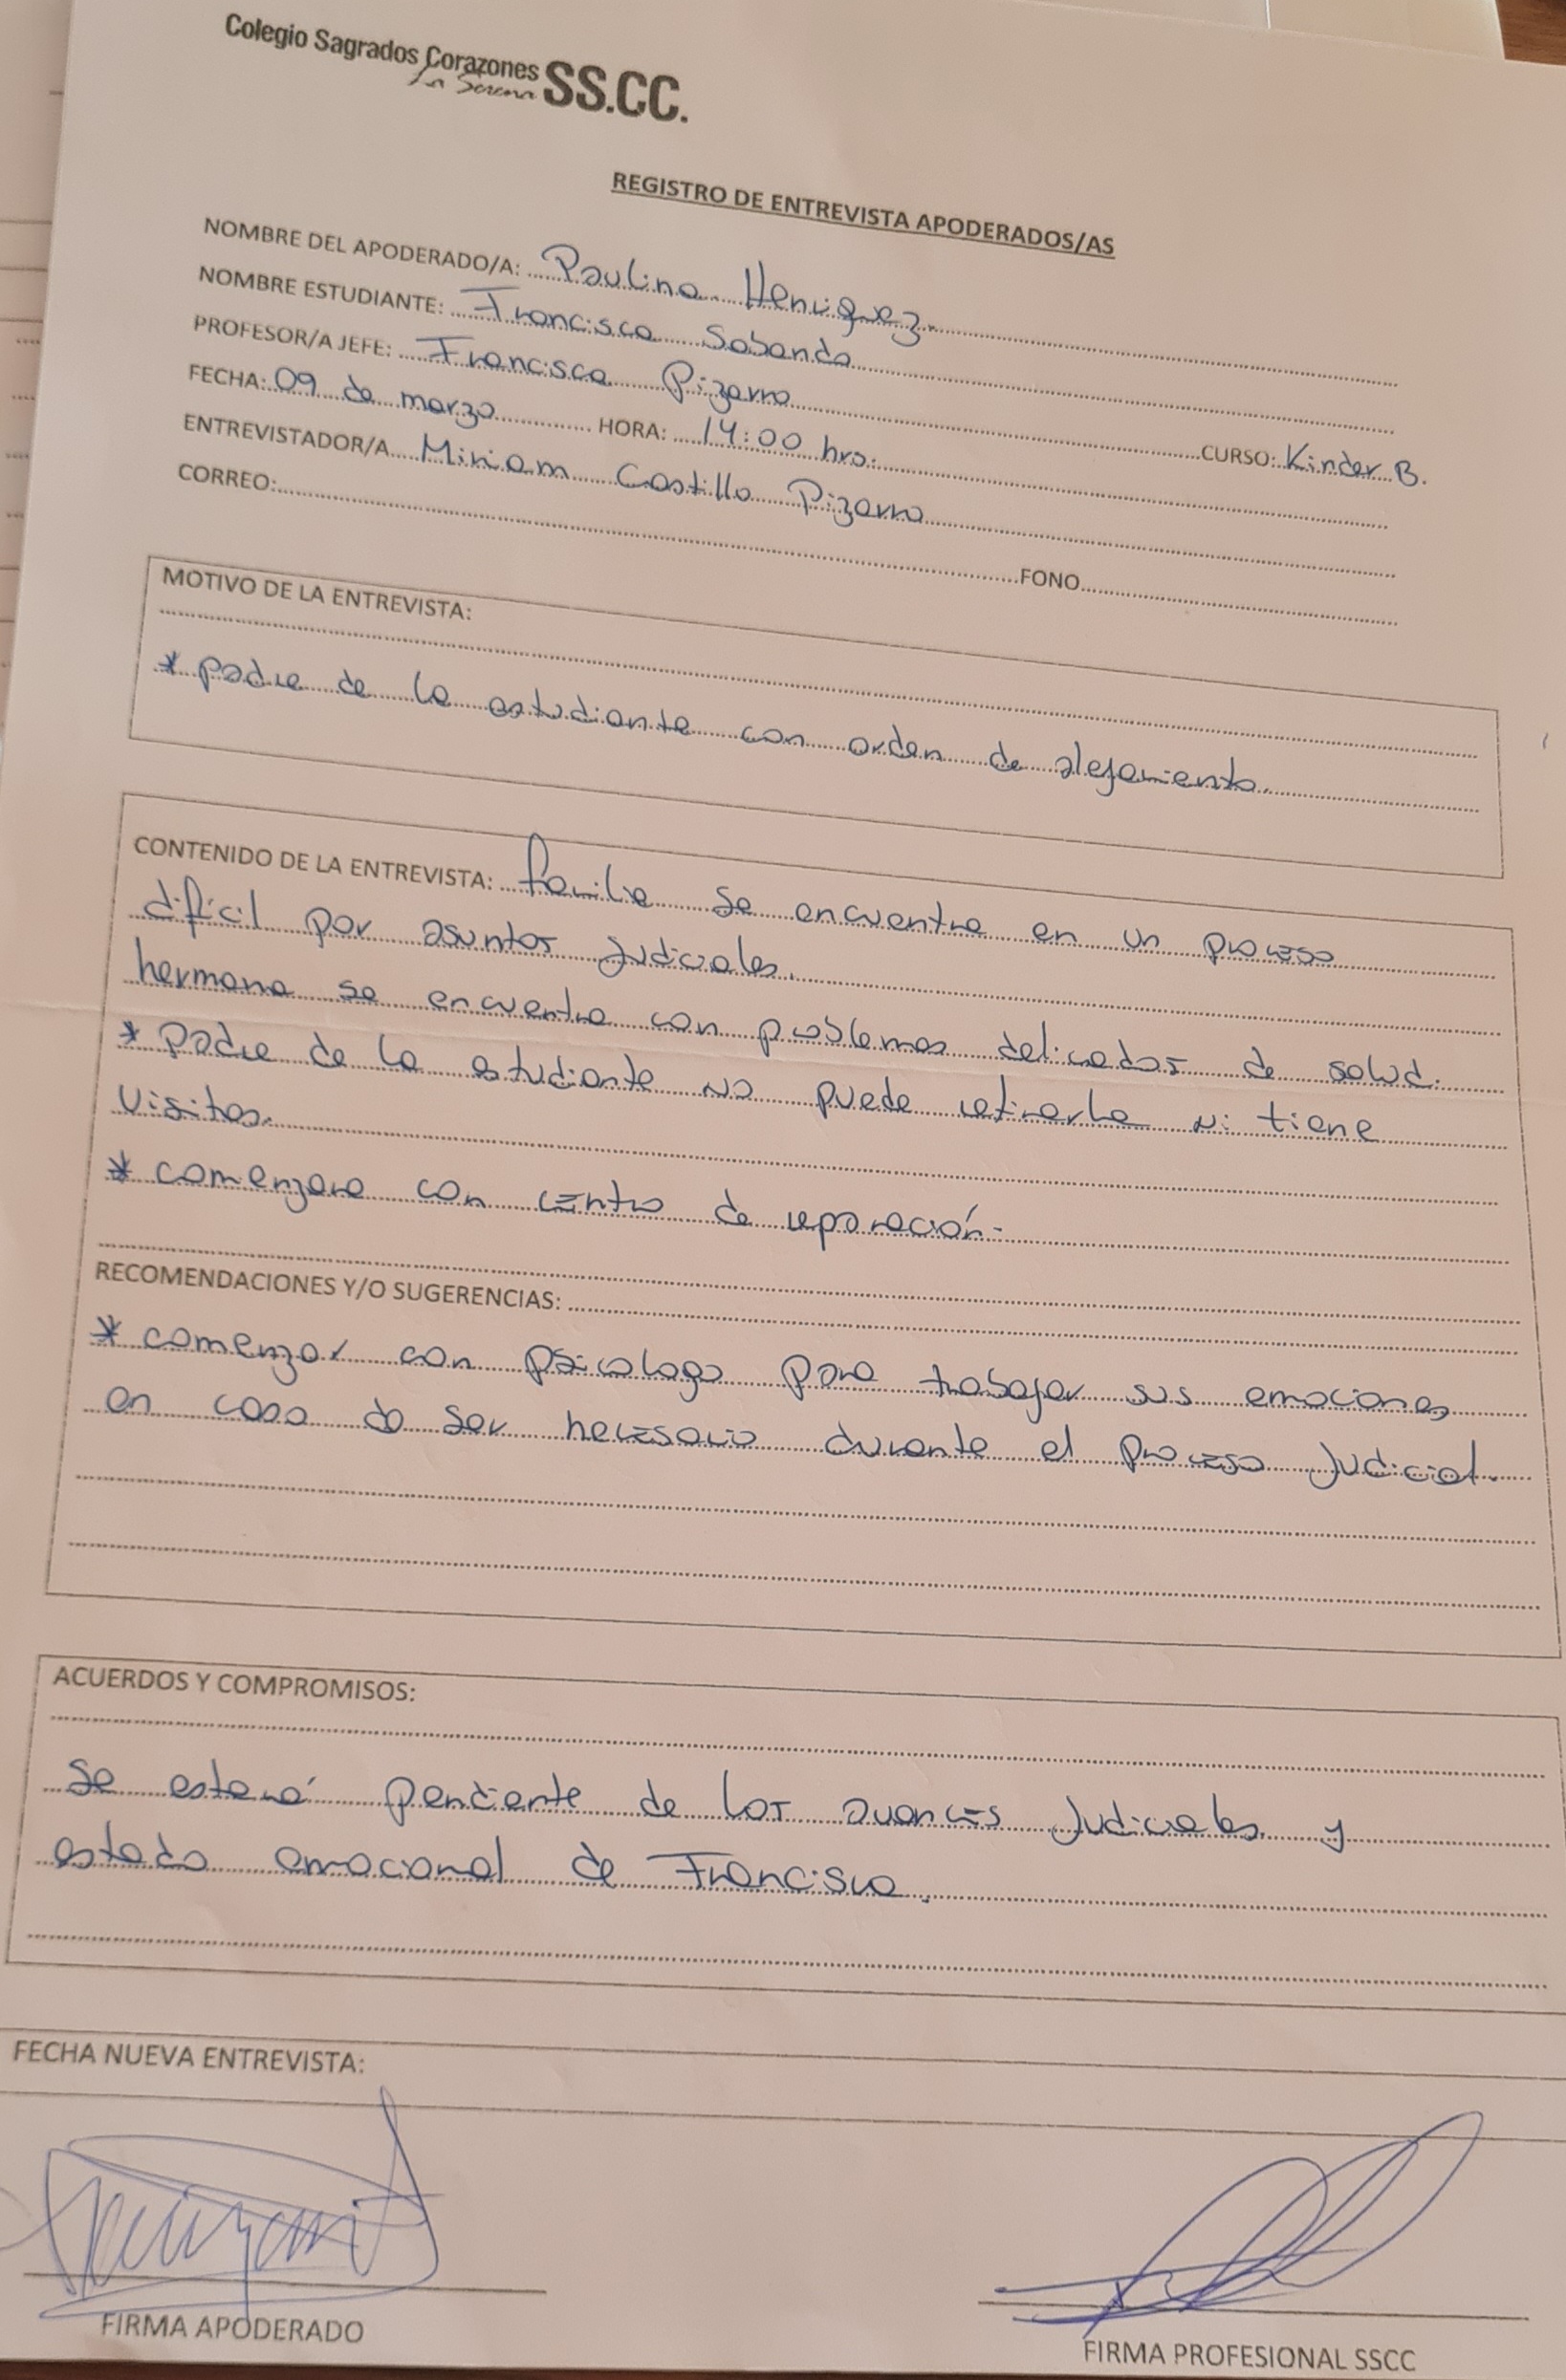 Colegio Sagrados Corazones SS.CC.
La Serena
REGISTRO DE ENTREVISTA APODERADOS/AS
NOMBRE DEL APODERADO/A: Paulina Henriquez.
NOMBRE ESTUDIANTE: Francisca Sabando
PROFESOR/A JEFE: Francisca Pizarro CURSO: Kinder B.
FECHA: 09 de marzo HORA: 14:00 hrs.
ENTREVISTADOR/A Miriam Castillo Pizarro
CORREO: FONO
MOTIVO DE LA ENTREVISTA:
* padre de la estudiante con orden de alejamiento.
CONTENIDO DE LA ENTREVISTA: familia se encuentra en un proceso
difícil por asuntos judiciales.
hermana se encuentra con problemas delicados de salud.
* Padre de la estudiante no puede retirarla ni tiene
visitas.
* comenzara con centro de reparación.
RECOMENDACIONES Y/O SUGERENCIAS:
* comenzar con psicologo para trabajar sus emociones
en caso de ser necesario durante el proceso judicial.
ACUERDOS Y COMPROMISOS:
Se estará pendiente de los avances judiciales y
estado emocional de Francisca.
FECHA NUEVA ENTREVISTA:
FIRMA APODERADO
FIRMA PROFESIONAL SSCC